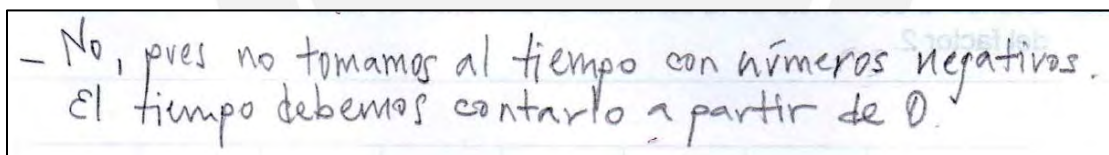 - No, pues no tomamos al tiempo con números negativos.
El tiempo debemos contarlo a partir de 0.